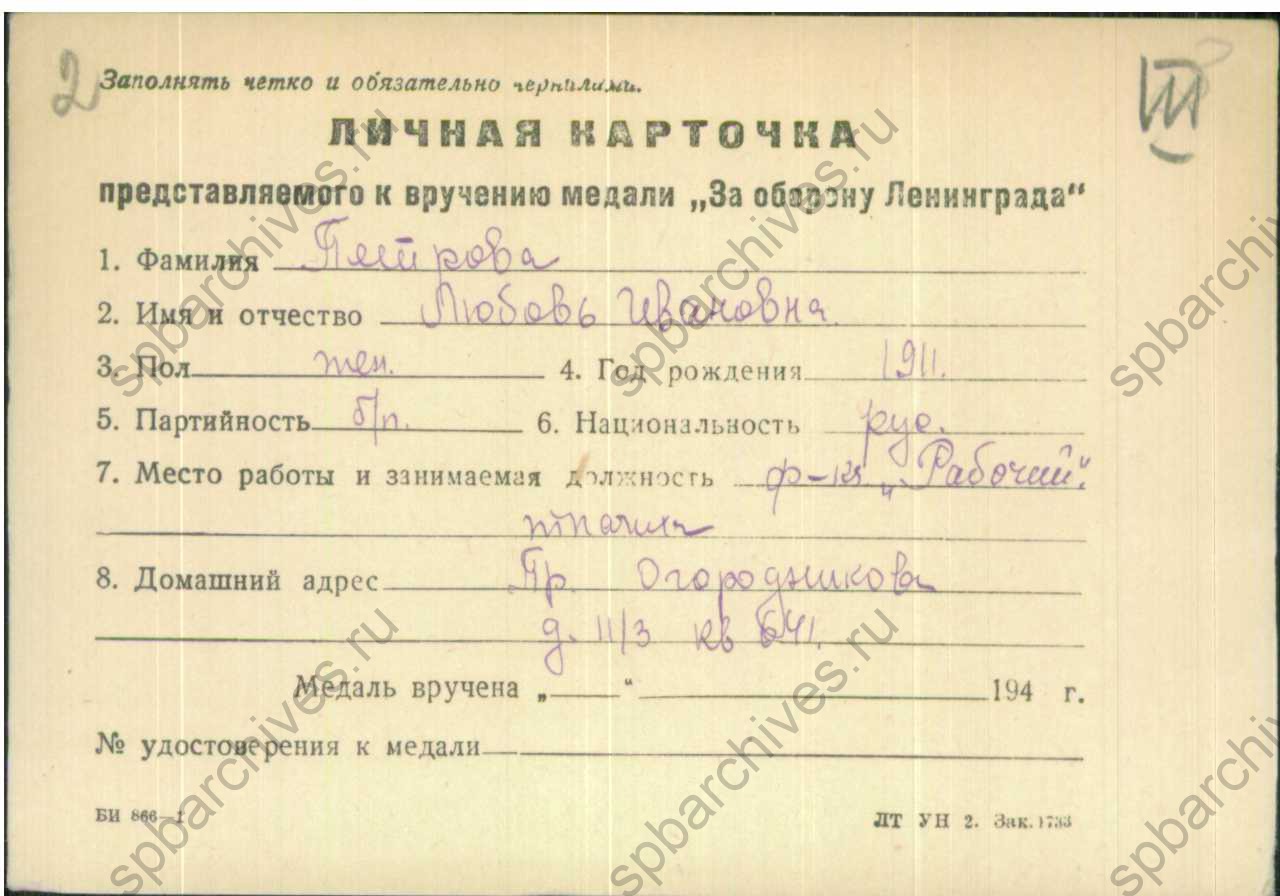 2
III
Заполнять четко и обязательно чернилами.
ЛИЧНАЯ КАРТОЧКА
представляемого к вручению медали „За оборону Ленинграда“
1. Фамилия Петрова
2. Имя и отчество Любовь Ивановна
3. Пол жен. 4. Год рождения 1911.
5. Партийность б/п. 6. Национальность рус.
7. Место работы и занимаемая должность ф-ка „Рабочий“.
ткачиха
8. Домашний адрес Пр. Огородникова
д. 11/3 кв 641.
Медаль вручена „ “ 194 г.
№ удостоверения к медали
БИ 866—1 ЛТ УН 2. Зак. 1733
spbarchives.ru